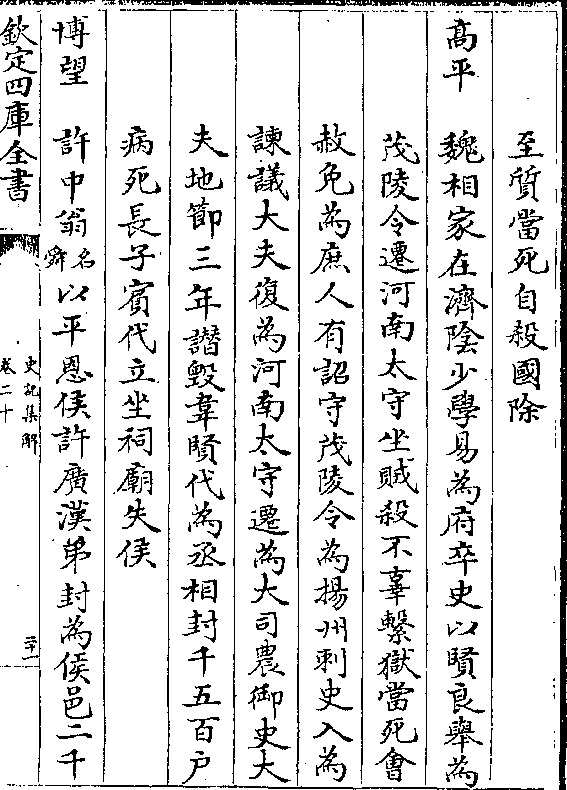 至質當死自殺國除
高平　魏相家在濟陰少學易為府卒史以賢良舉為
茂陵令遷河南太守坐賊殺不辜繫獄當死會
赦免為庶人有詔守茂陵令為揚州刺史入為
諫議大夫復為河南太守遷為大司農御史大
夫地節三年譖毀韋賢代為丞相封千五百户
病死長子賓代立坐祠廟失侯
博望　許中翁名舜以平恩侯許廣漢弟封為侯邑二千
欽定四庫全書
史記集解
卷二十
二十一